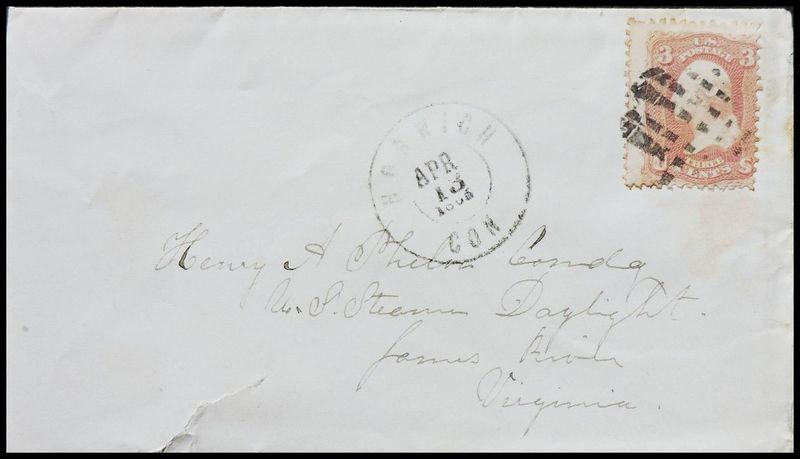 3 U.S. 3
POSTAGE
THREE
CENTS
NORWICH
APR
13
CON
Henry A Phelon Comdg
U. S. Steamer Daylight.
James River
Virginia.